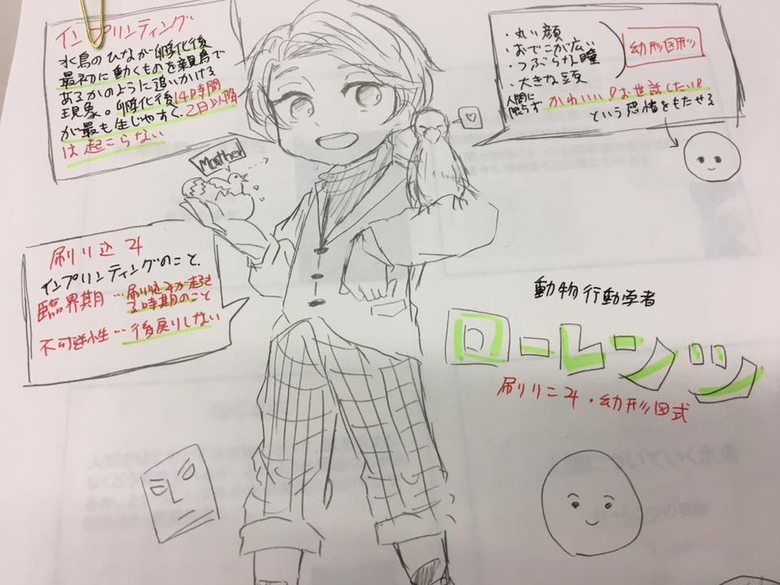 インプリンティング
水鳥のひなが孵化後
最初に動くものを親鳥で
あるかのように追いかける
現象。孵化後14時間
が最も生じやすく、2日以降
は起こらない
・丸い顔
・おでこが広い
・つぶらな瞳
・大きな頭
幼形図形
人間に
限らず
かわいい!お世話したい!
という感情をもたせる
Mother
刷り込み
インプリンティングのこと、
臨界期…刷り込みが起こ
る時期のこと
不可逆性…後戻りしない
動物行動学者
ローレンツ
刷りこみ・幼形図式